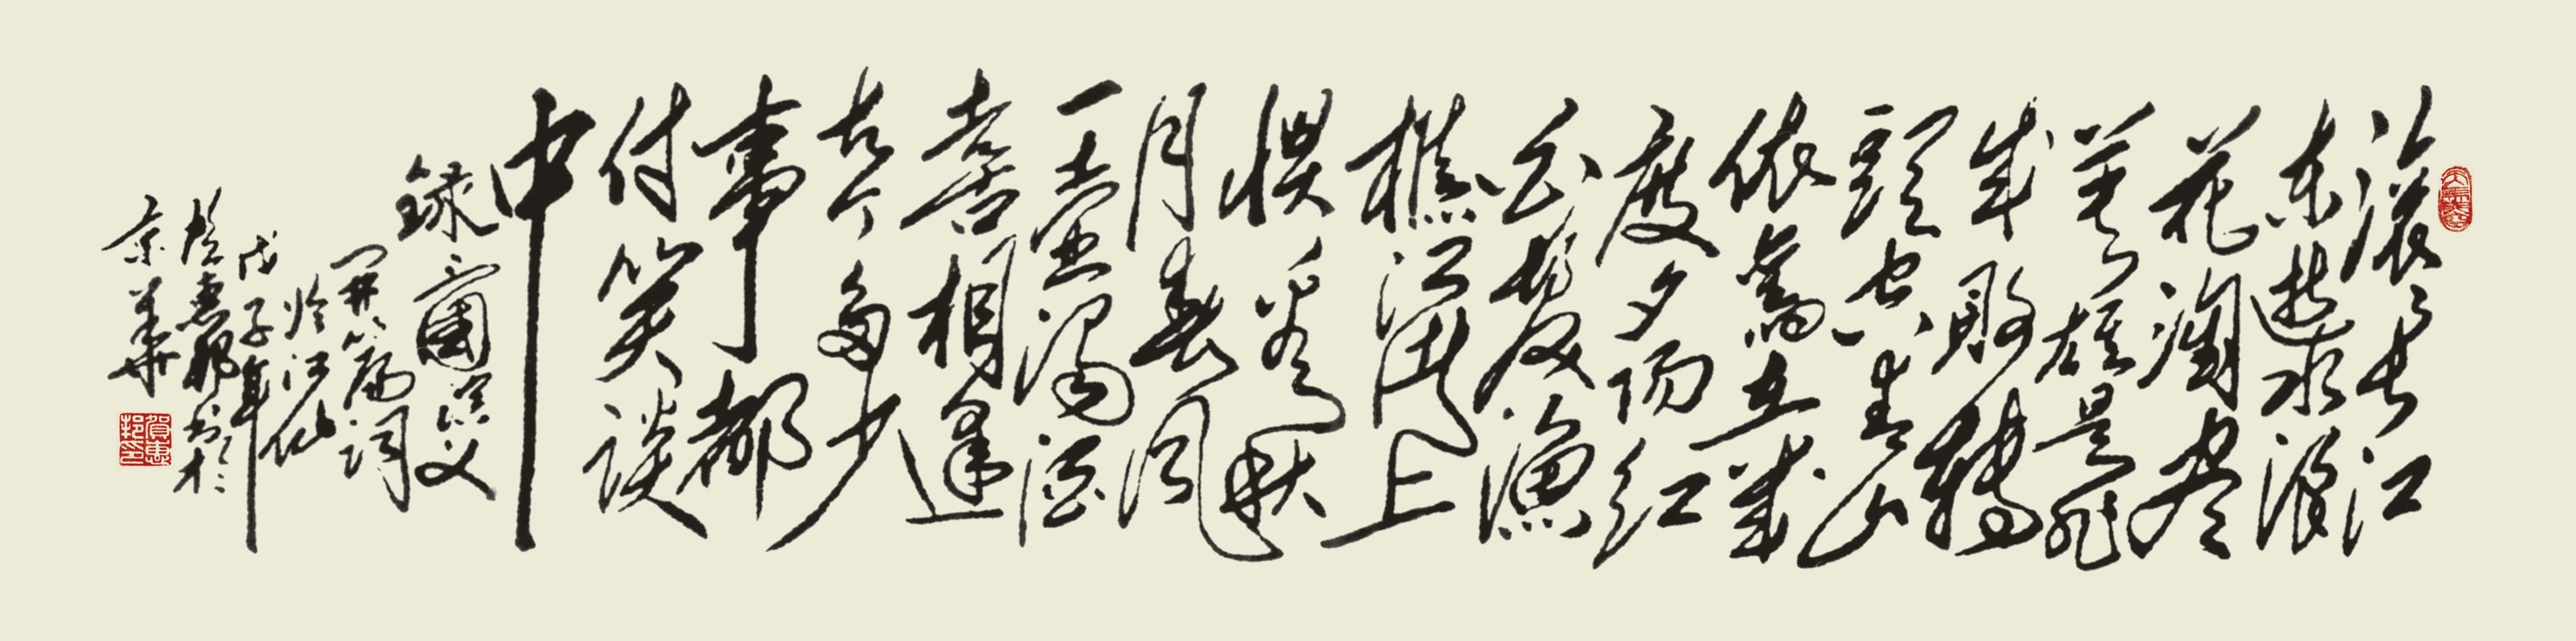 滚々长江
东逝水浪
花淘尽
英雄是非
成敗转
頭空青山
依舊在几
度夕阳红
白髮渔
樵江渚上
惯看秋
月春风
一壶濁酒
喜相逢
古今多少
事都
付笑谈
中
録三國演义
开篇词
临江仙
戊子年
贺惠邦书於
京華
賀惠邦印